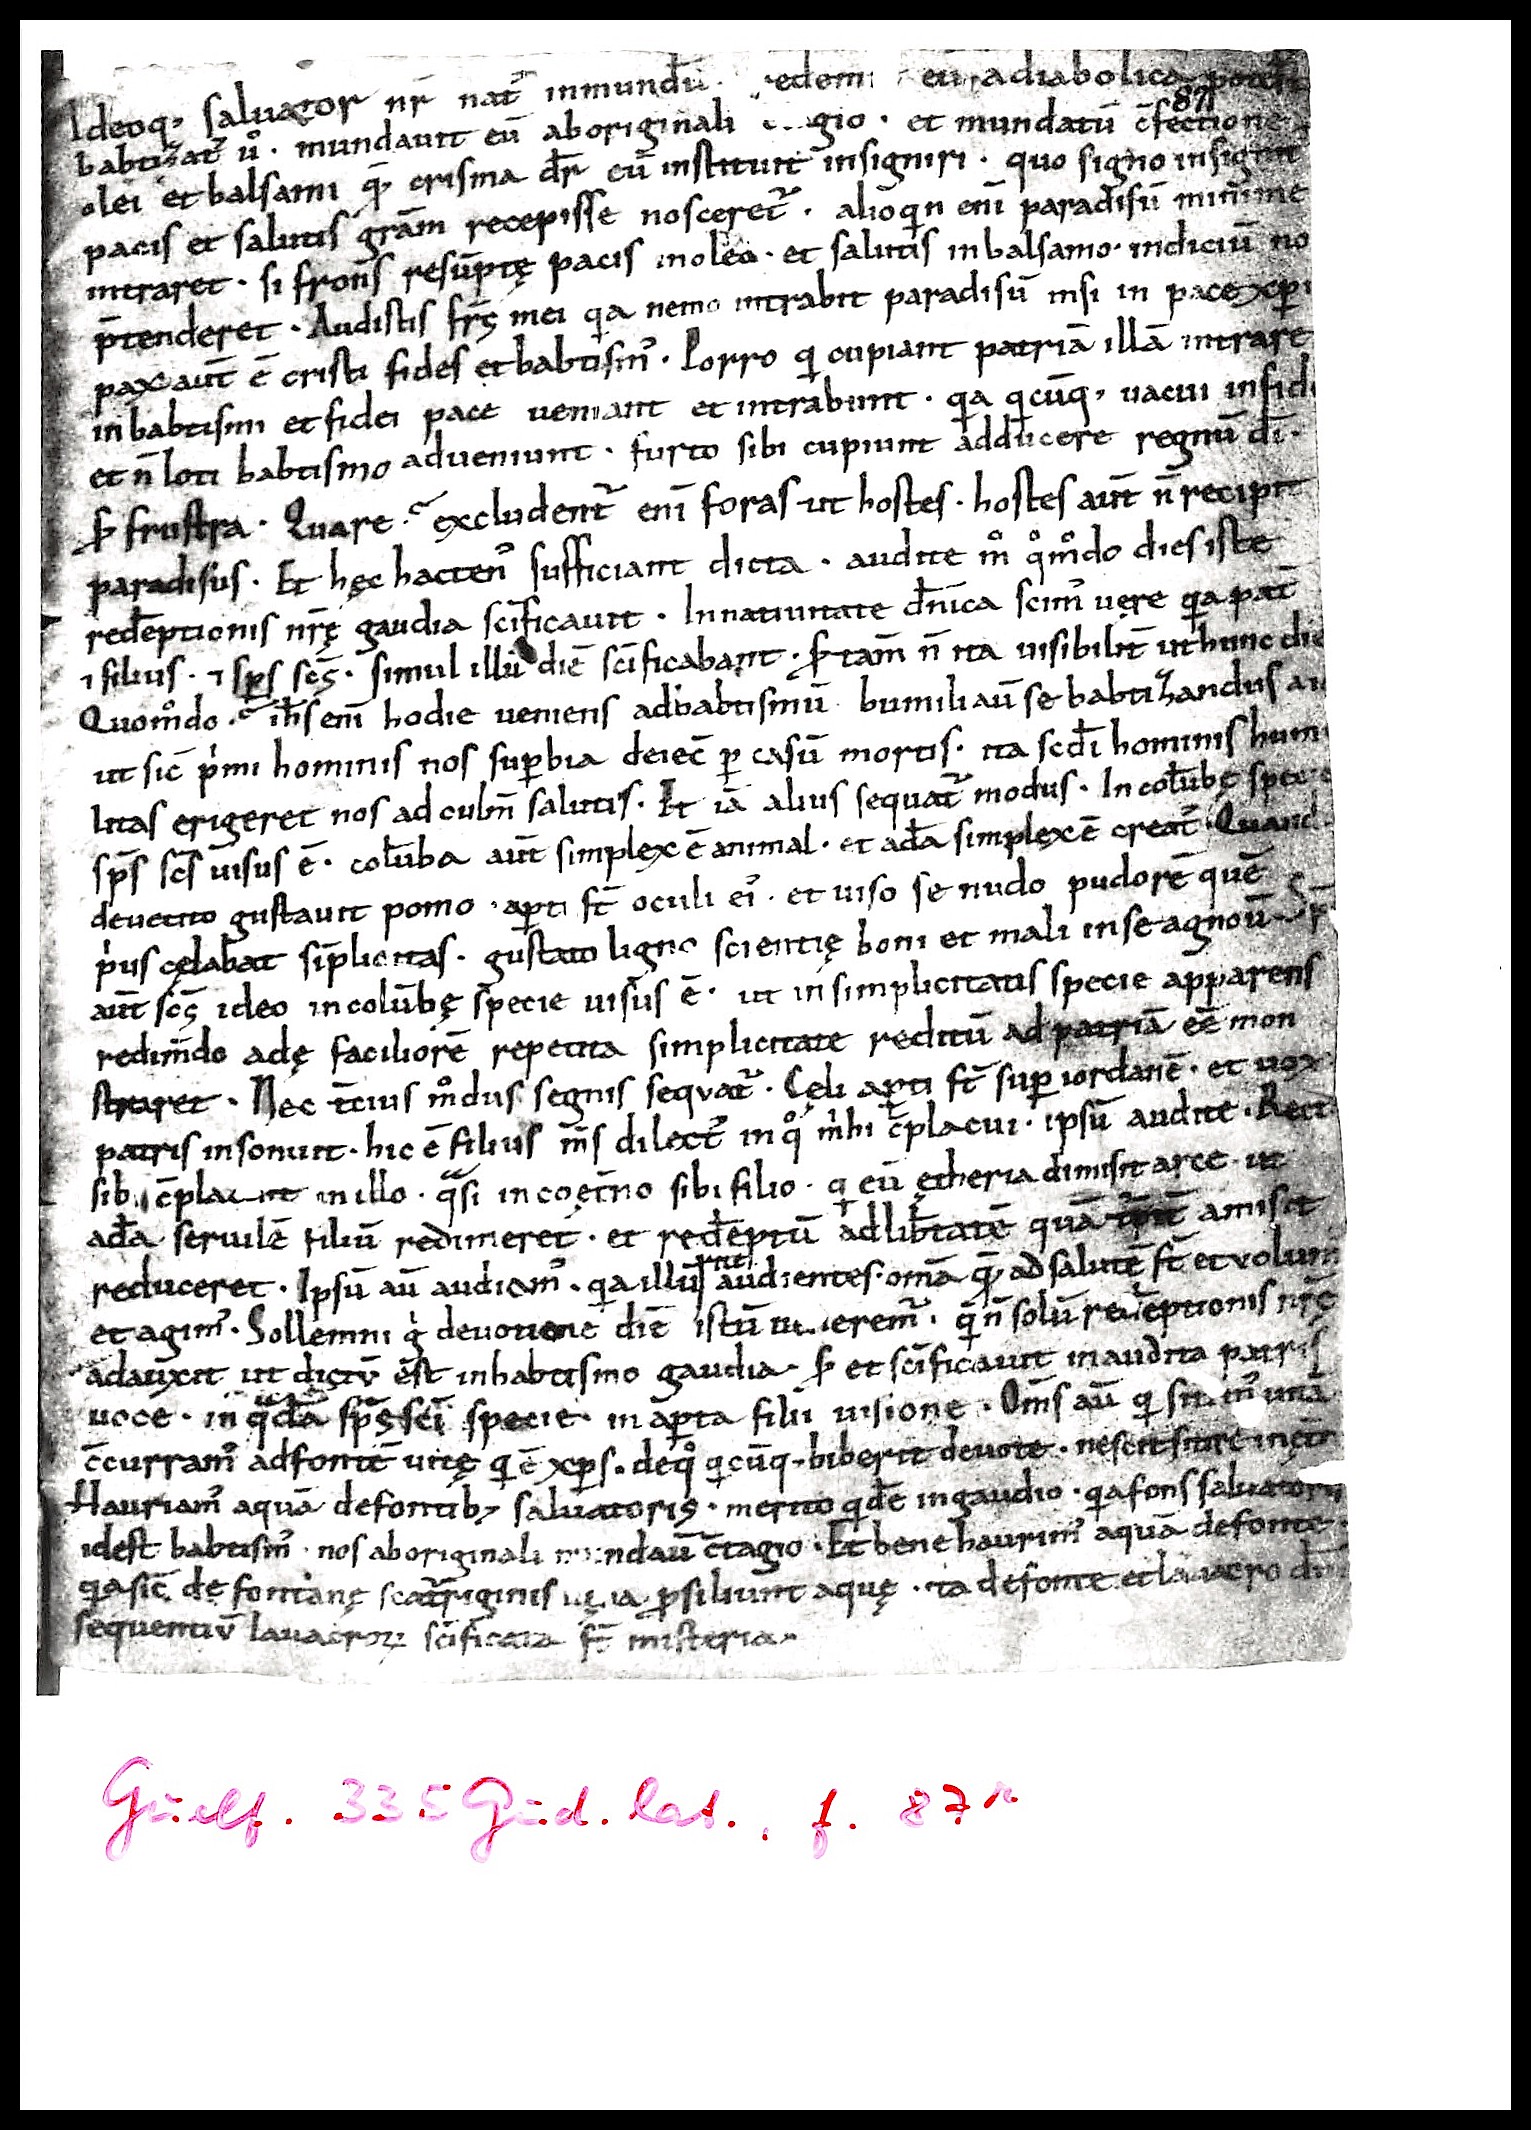 Ideoq; saluator nr̄ nat᾽ inmundū. edemi eū adiabolica
87
babtizat᾽ uͦ. mundauit eū aboriginali gio. et mundatū c̄fectione
olei et balsami q̨ crisma dr̄ eū instituit insigniri. quo signo insignit
pacis et salutis grām recepisse nosceret᾽. alioqn enī paradisū minime
intraret. si frons resūptę pacis inoleo. et salutis inbalsamo. indiciū no
p̄tenderet. Audistis frs̄ mei qa nemo intrabit paradisū nisi in pace
pax aut̄ ē cristi fides et babtism᾽. Porro qi cupiant patriā illā intrare
in babtismi et fidei pace ueniant et intrabunt. qa qicūq; uacui infid
et n̄ loti babtismo adueniunt. furto sibi cupiunt adducere regnū dī.
Sʒ frustra. Quare? excludent᾽ enī foras ut hostes. hostes aut̄ n̄ recipit
paradisus. Et hęc hacten᾽ sufficiant dicta. audite mͦ qͦmͦdo dies iste
redēptionis nrę̄ gaudia scīficauit. In natiuitate dn̄ica scim᾽ uęre qa pat̄
⁊ filius. ⁊ sp̄s scs̄. simul illū diē scīficabant. Sʒ tam̄ n̄ ita uisibilit̄ ut hunc die
Quomͦdo? ih̄s enī hodie ueniens adbabtismū humiliau̅ se babtizandus a
ut sic̄ pͥmi hominis nos sup̱bia deiec̄ p̱ casū mortis. ita scdī hominis humi
litas erigeret nos ad culm̄ salutis. Et iā alius sequat᾽ modus. In colūbę specie
sp̄s scs̄ uisus ē. colūba aut̄ simplex ē animal. et adā simplex ē creat᾽. Quand
deuetito gustauit pomo. ap̱ti st̄ oculi ei᾽. et uiso se nudo pudorē quē
pͥus cęlabat sīplicitas. gustato ligno scientię boni et mali inse agnou̅
aut̄ scs̄ ideo incolūbę specie uisus ē. ut in simplicitatis specie apparens
redim̄do adę faciliorē repetita simplicitate reditū ad patriā eē mon
straret. Nec t̄cius mͦdus segnis sequat᾽. Cęli ap̱ti st̄ sup̱ iordanē. et uox
patris insonuit. hic ē filius m̄s dilect᾽ in qͦ mͥhi c̄placui. ipsū audite. Rect
sibi c̄placuit in illo. qᵃsi incoęt̄no sibi filio. q eū ętheria dimisit arce. ut
adā seruilē filiū redimeret. et redēptū adlib̄tatē quā amisit
reduceret. Ipsū au̅ audiam᾽. qa illū audientes. omā q̨ ad salutē st̄ et volum᾽
et agim᾽. Sollemni gͥ deuotione diē istū uenerem᾽. qͥ n̄ solū redēptionis nrę̄
adauxit ut dictū est inbabtismo gaudia. Sʒ et scīficauit inaudita patris
uoce. in qᵃdā sp̄s scī specie. in ap̱ta filii uisione. Om̄s au̅ qi una
c̄curram᾽ adfontē uitę qi ē xp̄s. deqͦ qicūq; biberit deuote. nescit sitire inęt̄
Hauriam᾽ aquā defontib; saluatoris. merito qidē ingaudio. qa fons saluatoris
idest babtism᾽. nos aboriginali mundau̅ c̄tagio. Et bene haurim᾽ aquā defonte
qa sic̄ de fontanę scat᾽riginis p̱siliunt aquę. ita defonte et lauacro
sequentiū lauacroꝝ scīficata st̄ misteria.
Guelf. 335 Gud. lat., f. 87r